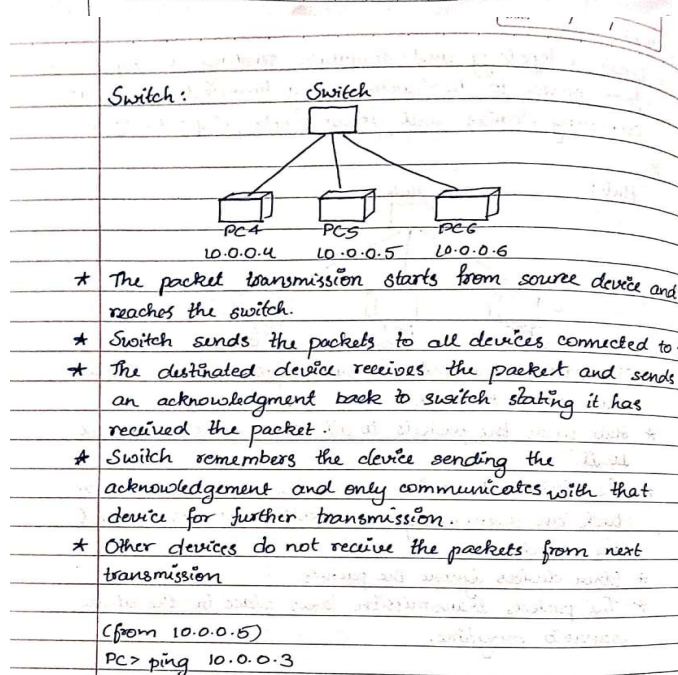 Switch : Switch
PC4 PC5 PC6
10.0.0.4 10.0.0.5 10.0.0.6
* The packet transmission starts from source device and
reaches the switch.
* Switch sends the packets to all devices connected to
* The destinated device receives the packet and sends
an acknowledgment back to switch stating it has
received the packet.
* Switch remembers the device sending the
acknowledgement and only communicates with that
device for further transmission.
* Other devices do not receive the packets from next
transmission
(from 10.0.0.5)
PC> ping 10.0.0.3